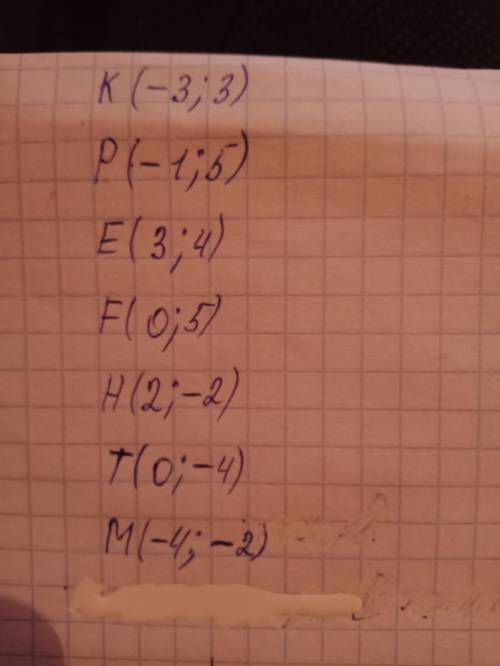 K(-3;3)
P(-1;5)
E(3;4)
F(0;5)
H(2;-2)
T(0;-4)
M(-4;-2)